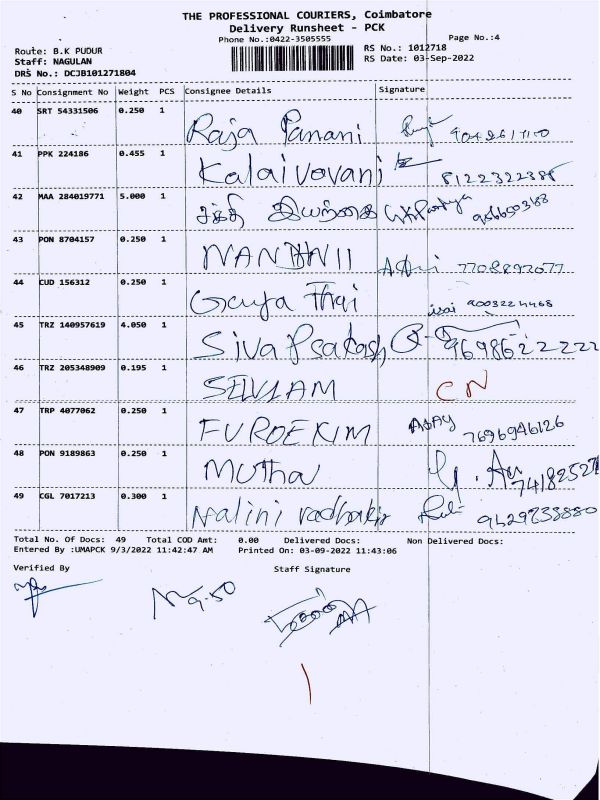 THE PROFESSIONAL COURIERS, Coimbatore
Delivery Runsheet - PCK
Phone No.:0422-3505555 Page No.:4
Route: B.K PUDUR RS No.: 1012718
Staff: NAGULAN RS Date: 03-Sep-2022
DRS No.: DCJB101271804
S No Consignment No Weight PCS Consignee Details Signature
40 SRT 54331506 0.250 1 Raja
41 PPK 224186 0.455 1 Kalaivovani 8122322385
42 MAA 284019771 5.000 1 சக்தி இயற்கை
43 PON 8704157 0.250 1 NANDHNII
44 CUD 156312 0.250 1 Thai 9003224468
45 TRZ 140957619 4.050 1 Siva Psakash 9698622222
46 TRZ 205348909 0.195 1 SELVLAM CN
47 TRP 4077062 0.250 1 FUROEKIM 7696946126
48 PON 9189863 0.250 1 Mutha
49 CGL 7017213 0.300 1 Nalini
Total No. Of Docs: 49 Total COD Amt: 0.00 Delivered Docs: Non Delivered Docs:
Entered By :UMAPCK 9/3/2022 11:42:47 AM Printed On: 03-09-2022 11:43:06
Verified By Staff Signature
9.50